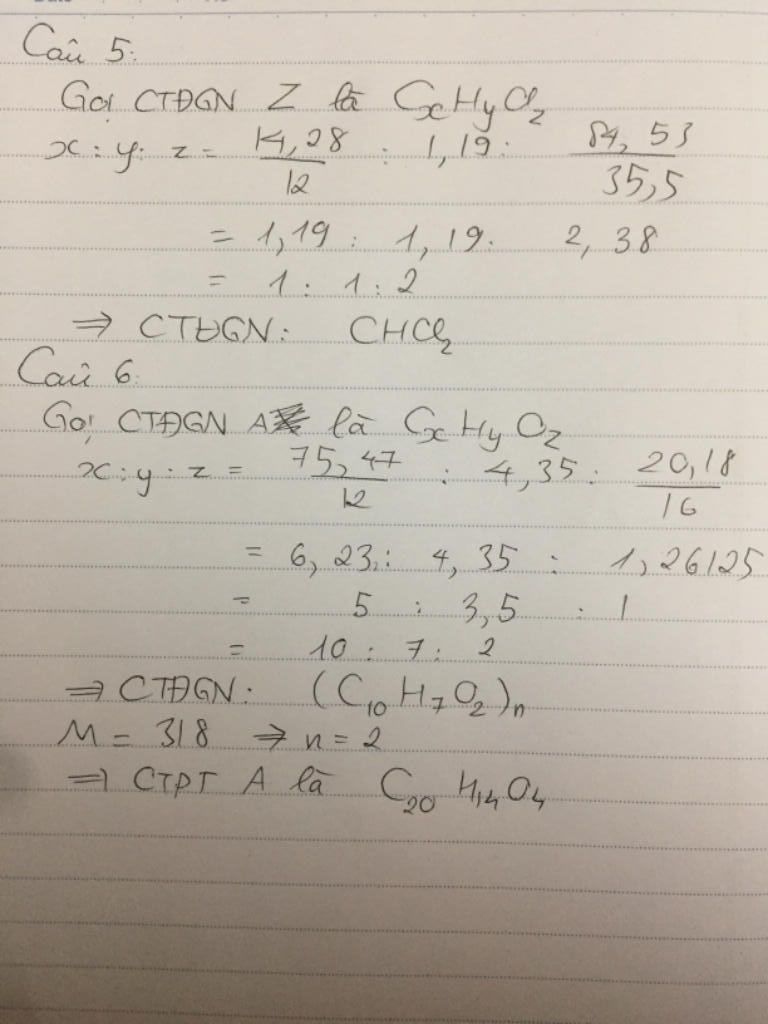 Câu 5:
Gọi CTĐGN Z là CxHyClz
x : y : z = 14,28/12 : 1,19 : 84,53/35,5
= 1,19 : 1,19 : 2,38
= 1 : 1 : 2
⇒ CTĐGN: CHCl₂
Câu 6:
Gọi CTĐGN A là CxHyOz
x : y : z = 75,47/12 : 4,35 : 20,18/16
= 6,23 : 4,35 : 1,26125
= 5 : 3,5 : 1
= 10 : 7 : 2
⇒ CTĐGN: (C₁₀H₇O₂)n
M = 318 ⇒ n = 2
⇒ CTPT A là C₂₀H₁₄O₄